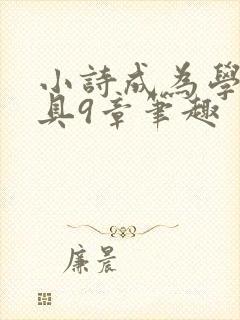 小詩成為學
具9章筆趣
廉晨